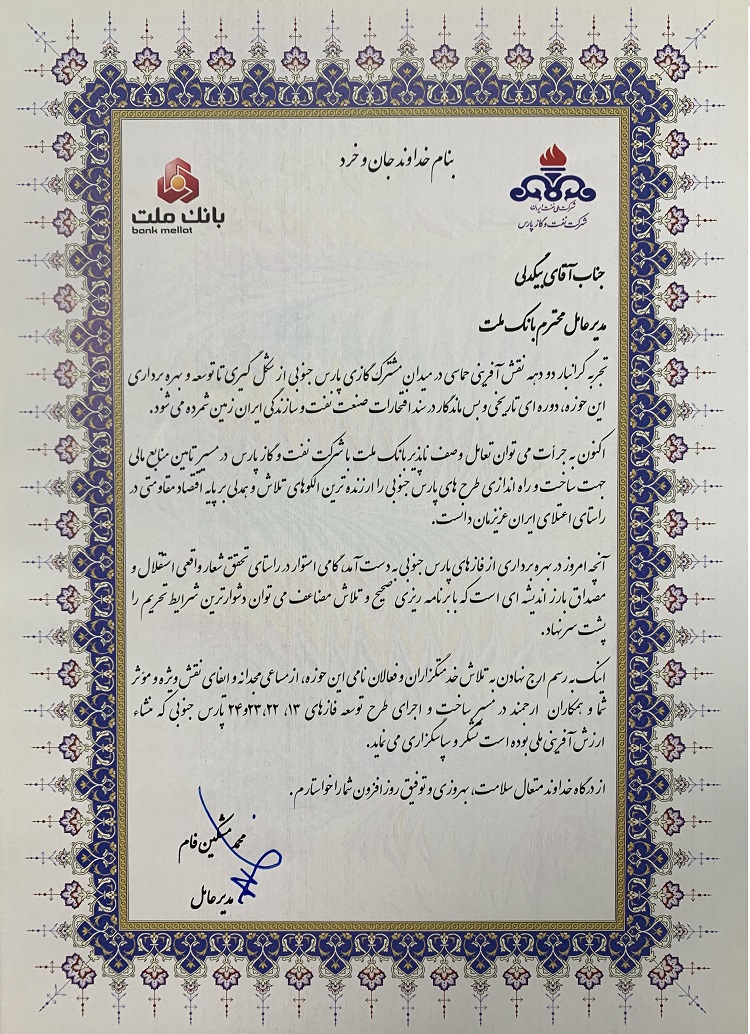 بنام خداوند جان و خرد
بانک ملت
bank mellat
شرکت ملی نفت ایران
شرکت نفت و گاز پارس
جناب آقای بیگدلی
مدیر عامل محترم بانک ملت
تجربه گرانبار دو دهه نقش آفرینی حماسی در میدان مشترک گازی پارس جنوبی از شکل گیری تا توسعه و بهره برداری
این حوزه، دوره ای تاریخی و بس ماندگار در سند افتخارات صنعت نفت و سازندگی ایران زمین شمرده می شود.
اکنون به جرأت می توان تعامل وصف ناپذیر بانک ملت با شرکت نفت و گاز پارس در مسیر تامین منابع مالی
جهت ساخت و راه اندازی طرح های پارس جنوبی را ارزنده ترین الگوهای تلاش و همدلی بر پایه اقتصاد مقاومتی در
راستای اعتلای ایران عزیزمان دانست.
آنچه امروز در بهره برداری از فازهای پارس جنوبی به دست آمد، گامی استوار در راستای تحقق شعار واقعی استقلال و
مصداق بارز اندیشه ای است که با برنامه ریزی صحیح و تلاش مضاعف می توان دشوارترین شرایط تحریم را
پشت سر نهاد.
اینک به رسم ارج نهادن به تلاش خدمتگزاران و فعالان نامی این حوزه، از مساعی مجدانه و ایفای نقش ویژه و مؤثر
شما و همکاران ارجمند در مسیر ساخت و اجرای طرح توسعه فازهای ۱۳، ۲۲، ۲۳و۲۴ پارس جنوبی که منشاء
ارزش آفرینی ملی بوده است تشکر و سپاسگزاری می نماید.
از درگاه خداوند متعال سلامت، بهروزی و توفیق روز افزون شما را خواستارم.
محمد مشکین فام
مدیر عامل